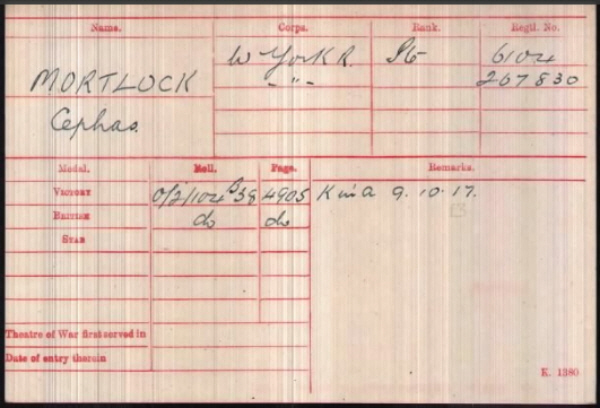 Name. Corps. Rank. Regtl. No.
MORTLOCK W York R. Pte 6104
-"- 267830
Cephas.
Medal. Roll. Page. Remarks.
VICTORY O/2/104 B38 4905 K in A 9.10.17.
BRITISH do do
STAR
Theatre of War first served in
Date of entry therein
K. 1380